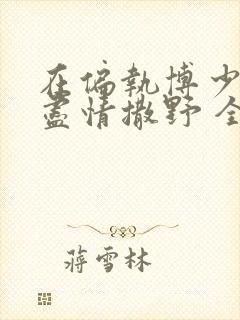 在偏執博少
盡情撒野 全
蔣雪林